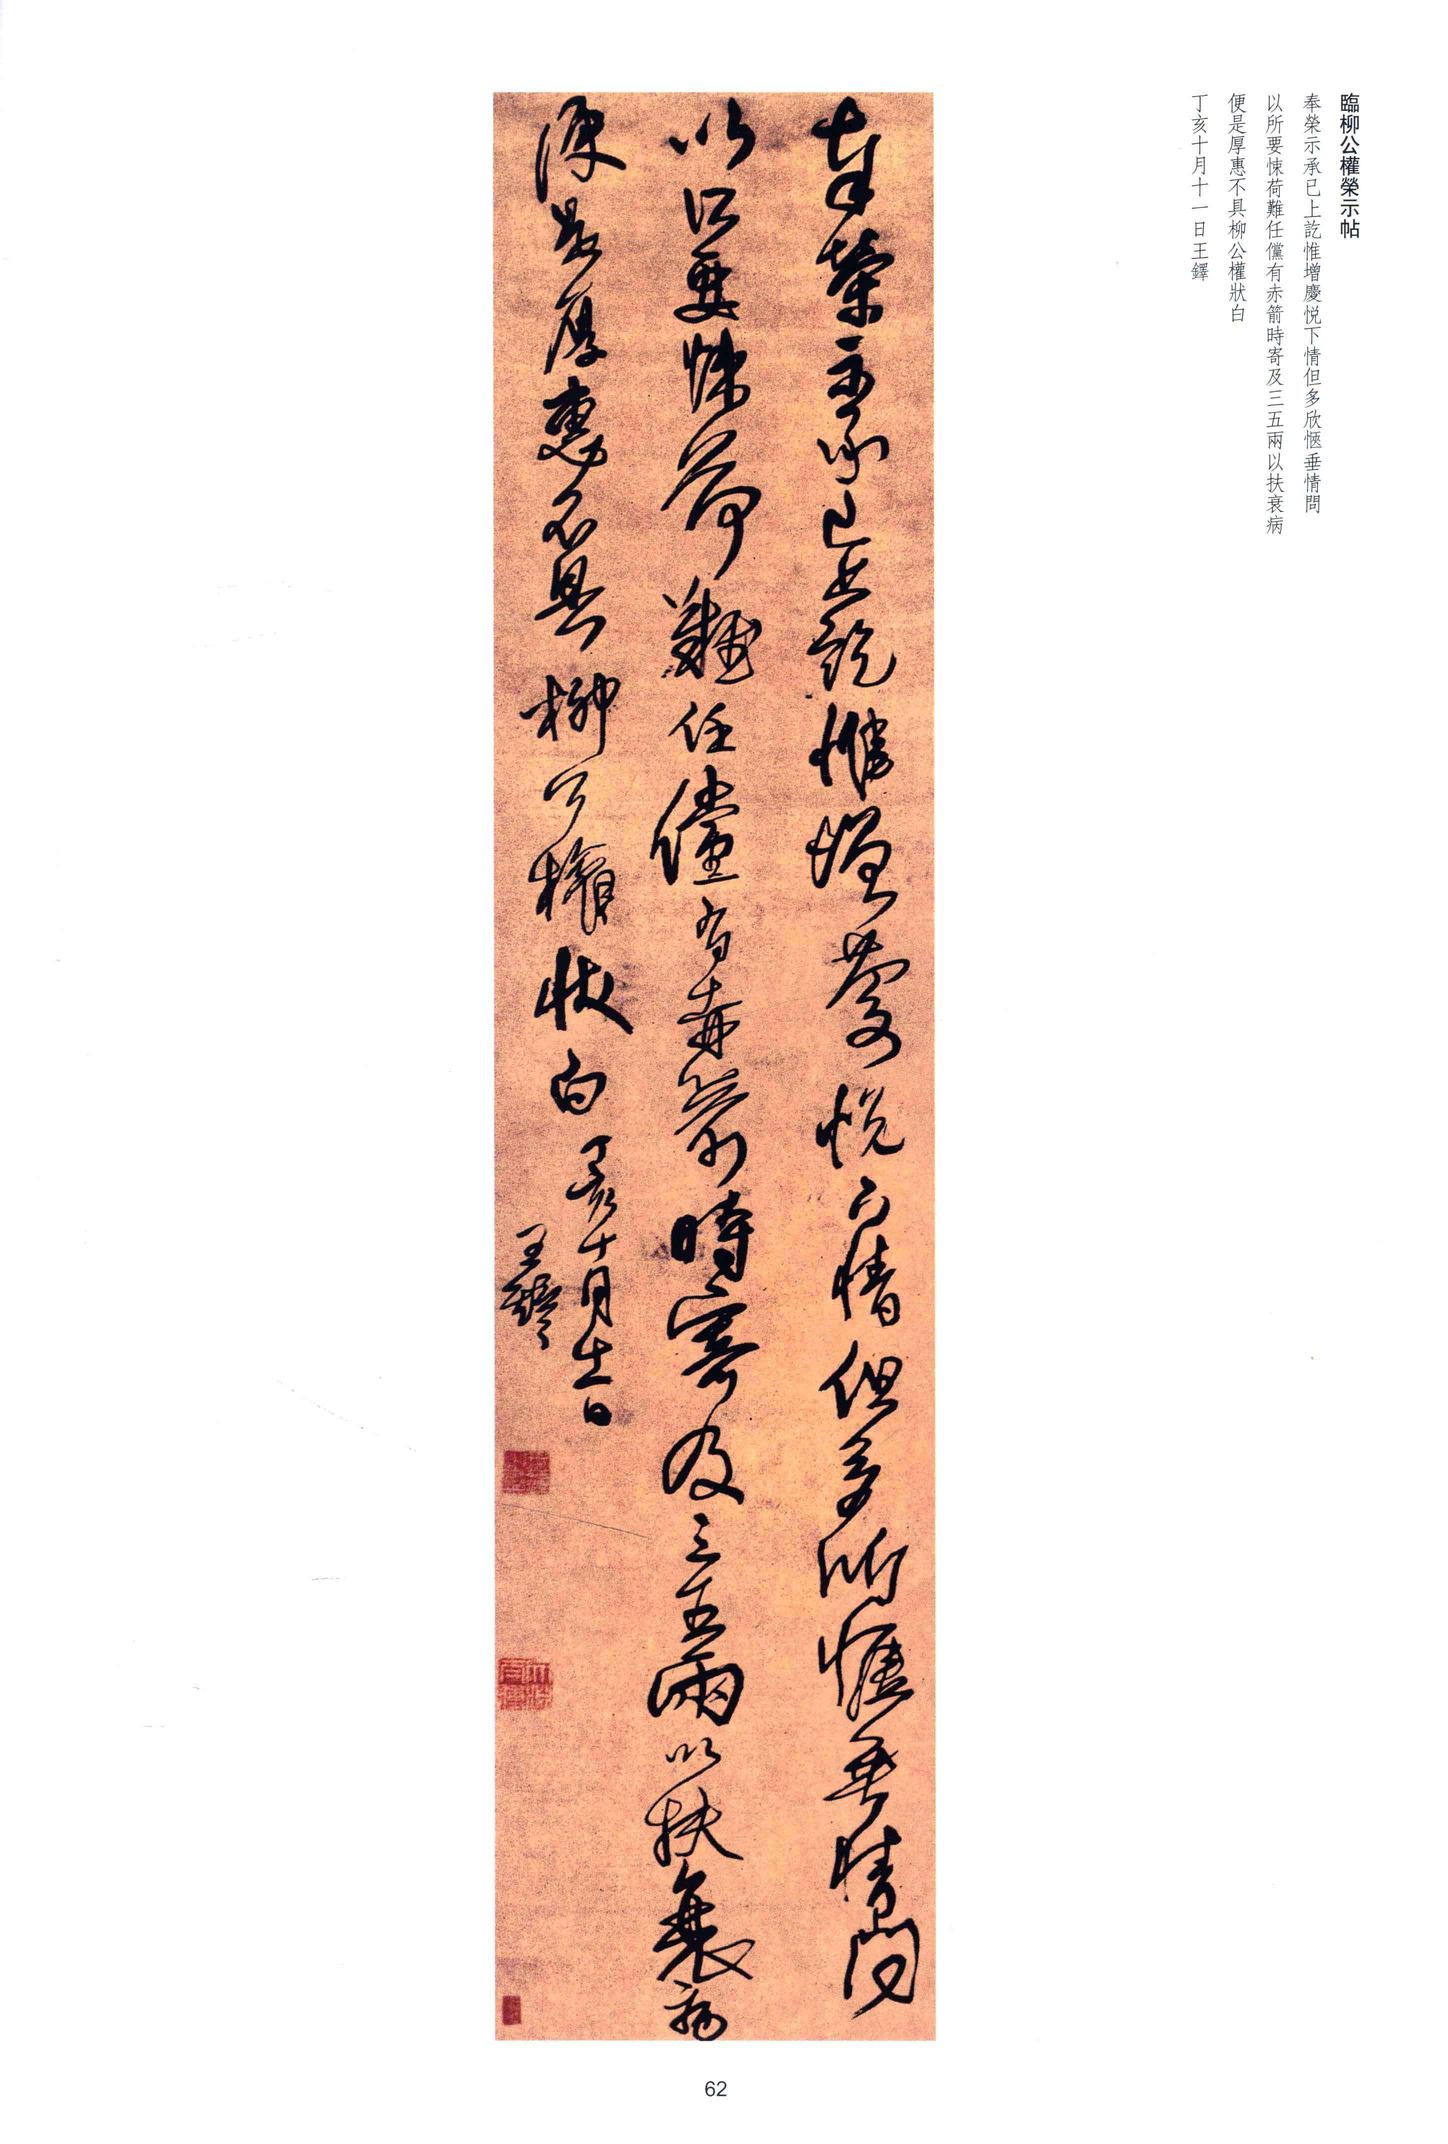 臨柳公權榮示帖
奉榮示承已上訖惟增慶悦下情但多欣愜垂情問
以所要悚荷難任儻有赤箭時寄及三五兩以扶衰病
便是厚惠不具柳公權狀白
丁亥十月十一日王鐸
奉榮示承已上訖惟增慶悦下情但多欣愜垂情問
以所要悚荷難任儻有赤箭時寄及三五兩以扶衰病
便是厚惠不具柳公權狀白
丁亥十月十一日
王鐸
62